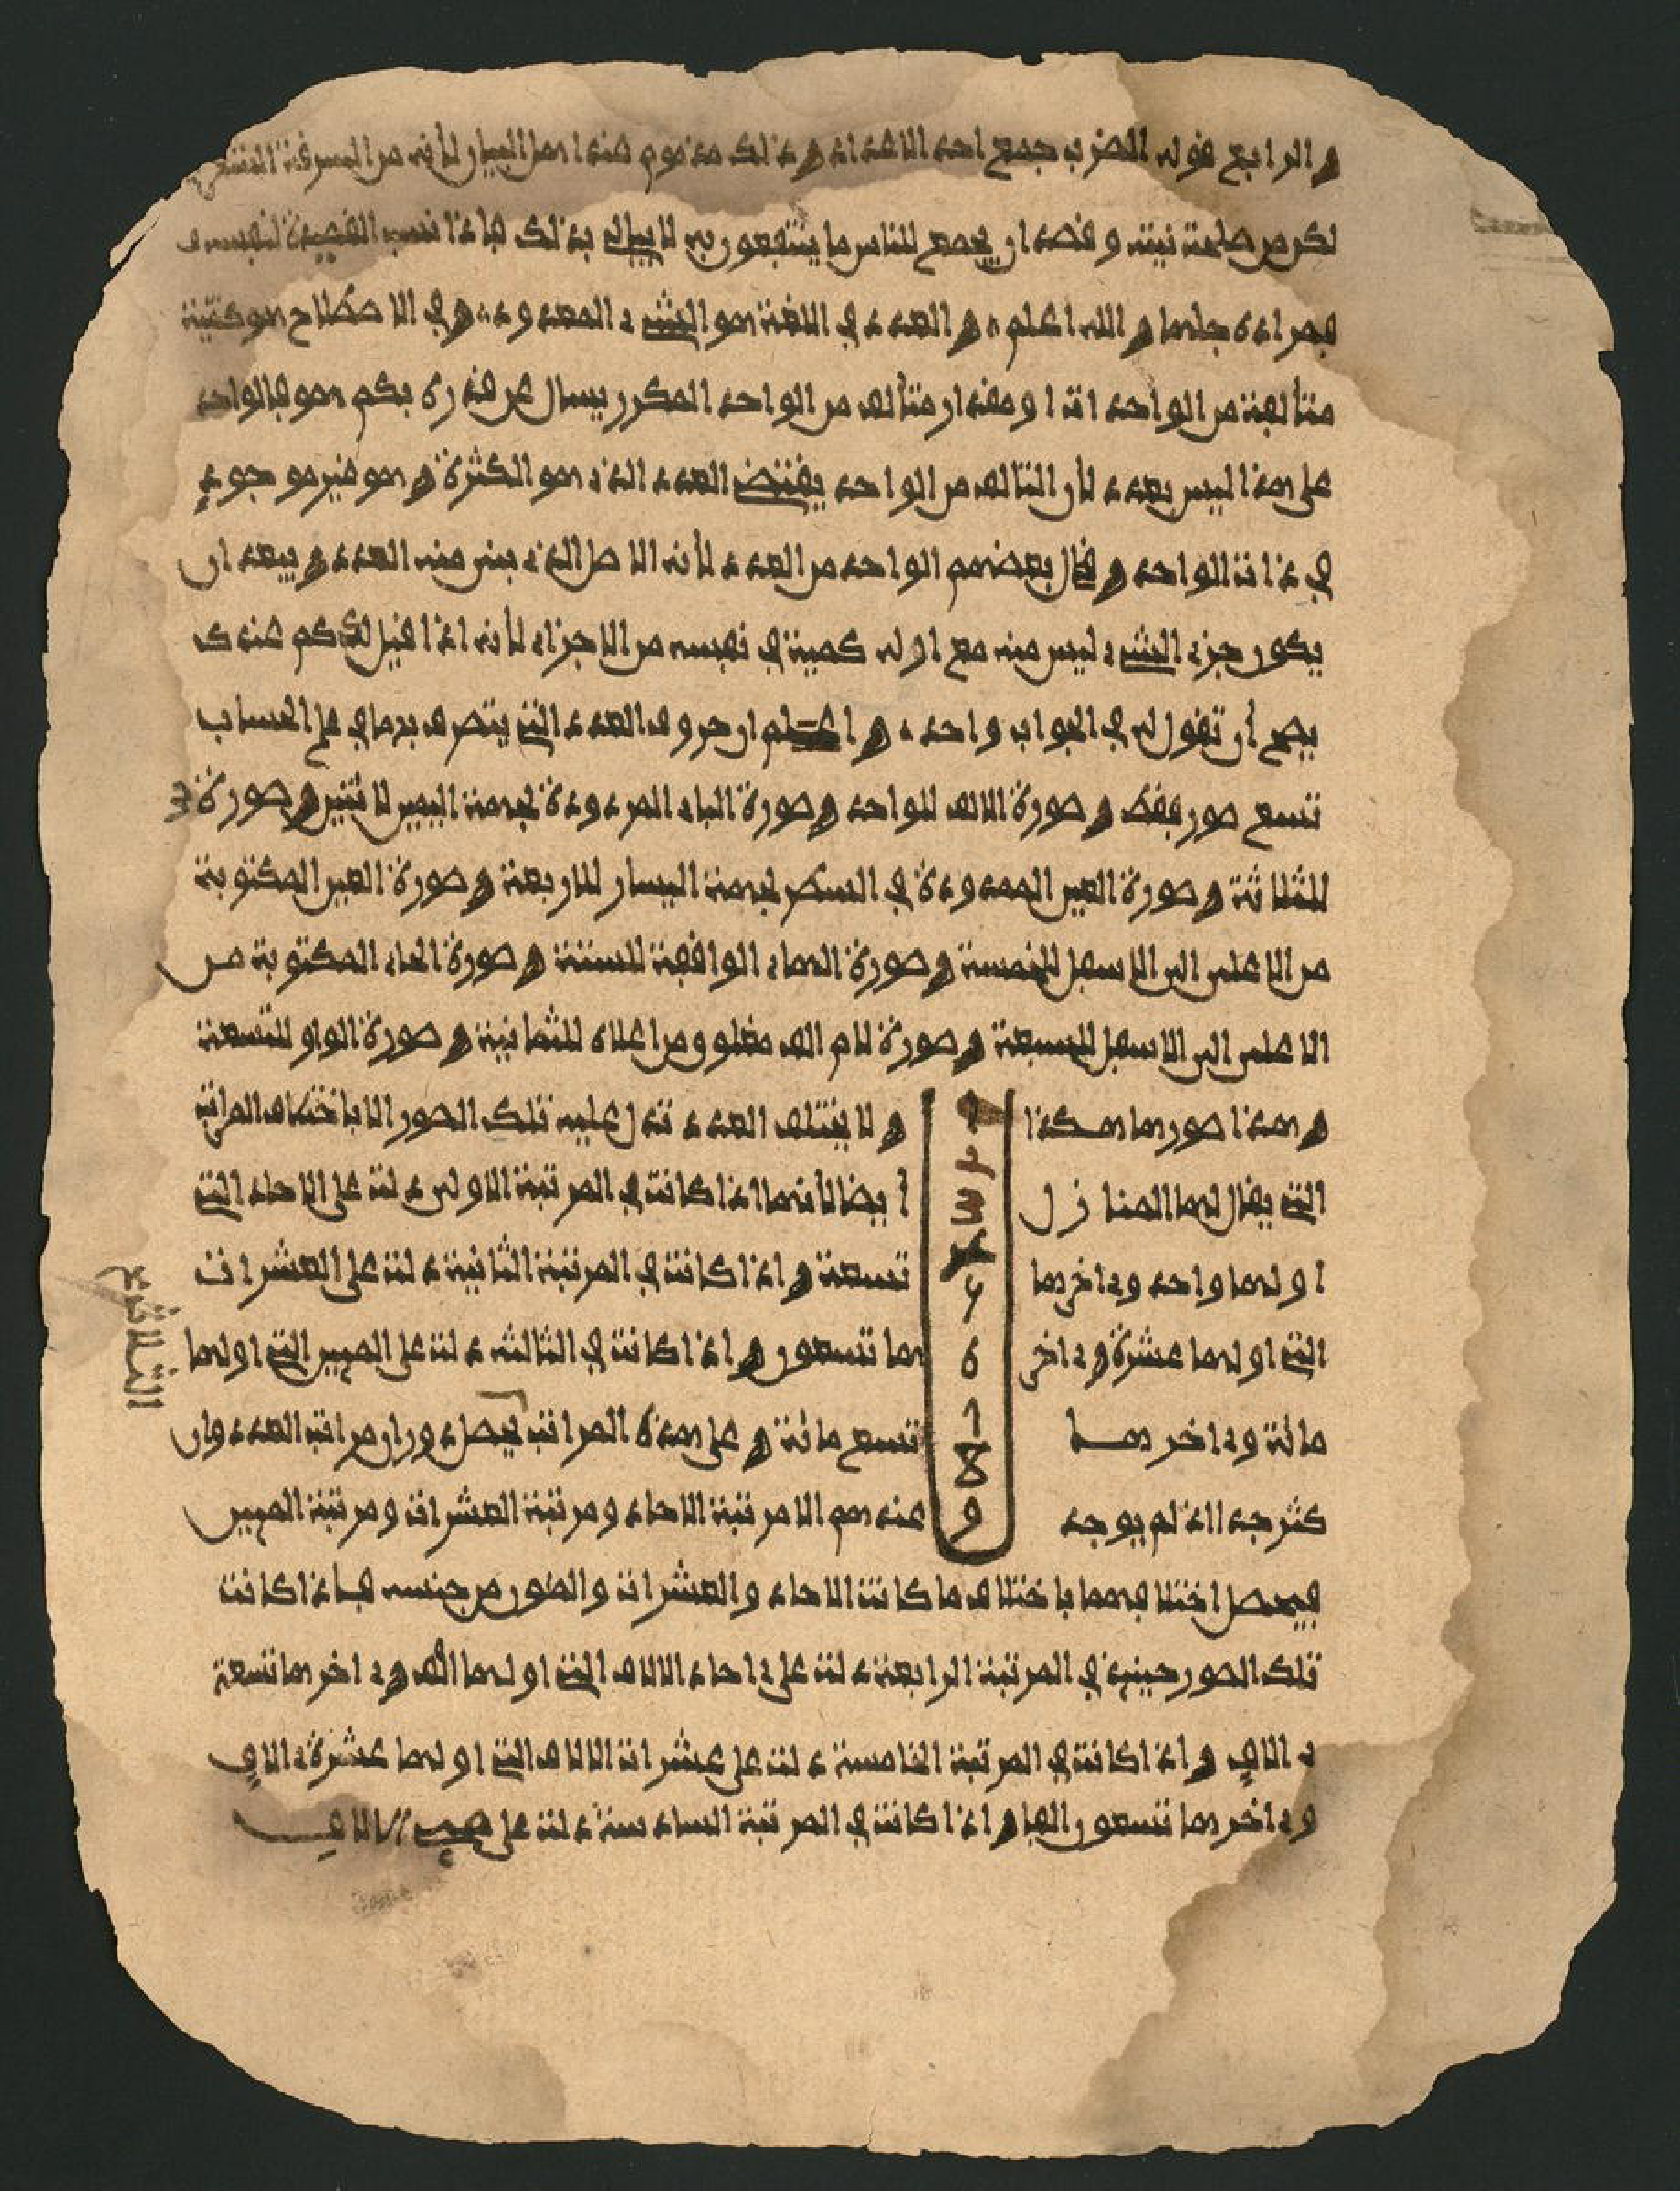 والرابع قوله الضرب جمع احد الاعداد وذلك مذموم عند اهل البيان لأنه من السرقة
لكن من صلحة نيته وقصد ان يجمع للناس ما ينتفعون به لا يبالي بذلك فاذا نسب القصيدة لنفسه
فمراده جلها والله اعلم والعدد في اللغة هو الشيء المعدود وفي الاصطلاح هو كمية
متألفة من الواحد ات او مقدار متألف من الواحد المكرر يسال عن قدره بكم هو فالواحد
على هذا ليس بعدد لأن التألف من الواحد يقتضي العدد الذي هو الكثرة وهو غير موجود
في ذات الواحد وقال بعضهم الواحد من العدد لأنه الاصل الذي بني منه العدد ويبعد ان
يكون جزء الشيء ليس منه مع ان له كمية في نفسه من الاجزاء لأنه اذا قيل لك كم عندك
يصح أن تقول له في الجواب واحد واعلم ان حروف العدد التي يتصرف بها في علم الحساب
تسع صور فقط وصورة الالف للواحد وصورة الباء المردودة لجهة اليمين لاثنين وصورة
للثلاثة وصورة العين الممدودة في السطر لجهة اليسار للاربعة وصورة العين المكتوبة
من الاعلى الى الاسفل للخمسة وصورة الهاء الواقفة للستة وصورة الحاء المكتوبة من
الاعلى الى الاسفل للسبعة وصورة لام الف مغلوق من اعلاه للثمانية وصورة الواو للتسعة
وهذا صورها هكذا ولا يختلف العدد تدل عليه تلك الصور الا باختلاف المراتب
التي يقال لها المنازل أيضا لأنها اذا كانت في المرتبة الاولى دلت على الاحاد التي
اولها واحد وءاخرها تسعة واذا كانت في المرتبة الثانية دلت على العشرات
التي اولها عشرة وءاخرها تسعون واذا كانت في الثالثة دلت على الميين التي اولها
مائة وءاخرها تسع مائة وعلى هذه المراتب يحصل دوران مراتب العدد وان
كثر جدا اذ لم يوجد عندهم الا مرتبة الاحاد ومرتبة العشرات ومرتبة الميين
فيحصل اختلافهما باختلاف ما كانت الاحاد والعشرات والمئون من جنسه فاذا كانت
تلك الصور حينئذ في المرتبة الرابعة دلت على ءاحاد الالاف التي اولها الف وءاخرها تسعة
ءالاف واذا كانت في المرتبة الخامسة دلت على عشرات الالاف التي اولها عشرة ءالاف
وءاخرها تسعون الفا واذا كانت في المرتبة السادسة دلت على ميي الالاف
١
٢
٣
۴
ع
٥
ح
8
و